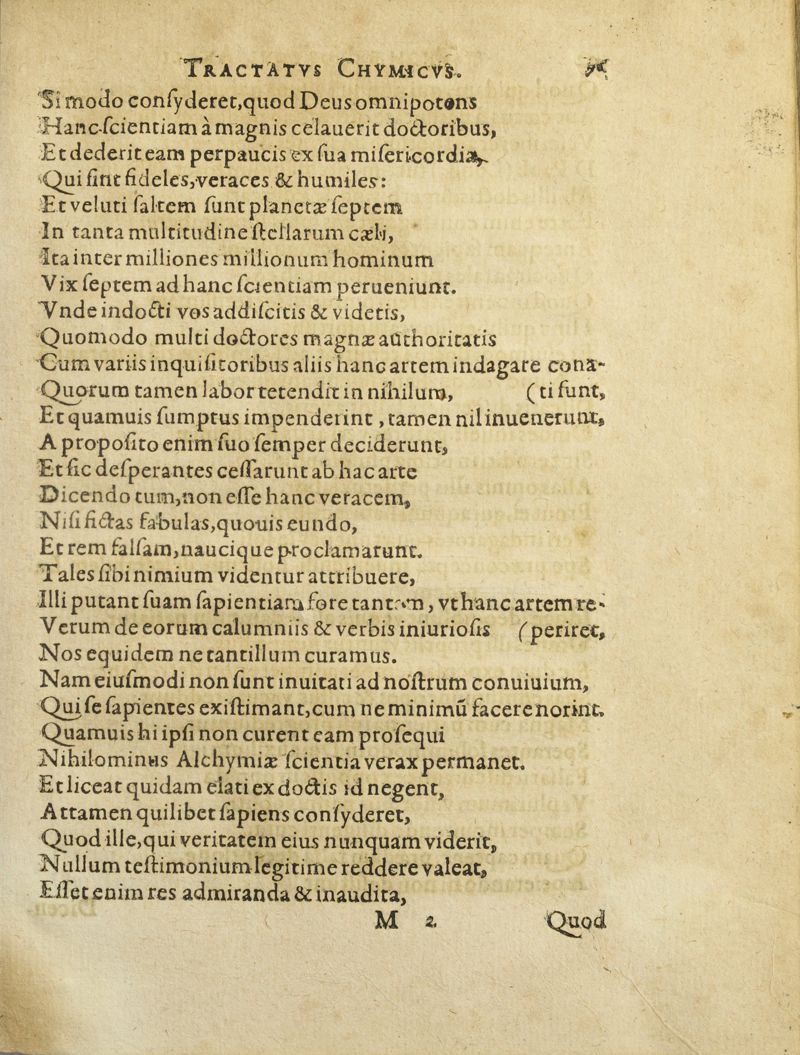 TRACTATVS CHYMICVS.
Si modo conſyderet, quod Deus omnipotens
Hanc ſcientiam à magnis celauerit doctoribus,
Et dederit eam perpaucis ex ſua miſericordia,
Qui ſint fideles, veraces & humiles:
Et veluti ſaltem ſunt planetæ ſeptem
In tanta multitudine ſtellarum cæli,
Ita inter milliones millionum hominum
Vix ſeptem ad hanc ſcientiam perueniunt.
Vnde indocti vos addiſcitis & videtis,
Quomodo multi doctores magnæ authoritatis
Cum variis inquiſitoribus aliis hanc artem indagare cona-
Quorum tamen labor tetendit in nihilum, (ti ſunt,
Et quamuis ſumptus impenderint, tamen nil inuenerunt,
A propoſito enim ſuo ſemper deciderunt,
Et ſic deſperantes ceſſarunt ab hac arte
Dicendo tum, non eſſe hanc veracem,
Niſi fictas fabulas, quouis eundo,
Et rem falſam, naucique proclamarunt.
Tales ſibi nimium videntur attribuere,
Illi putant ſuam ſapientiam fore tantam, vt hanc artem re-
Verum de eorum calumniis & verbis iniurioſis (periret,
Nos equidem ne tantillum curamus.
Nam eiuſmodi non ſunt inuitati ad noſtrum conuiuium,
Qui ſe ſapientes exiſtimant, cum ne minimū facere norint.
Quamuis hi ipſi non curent eam proſequi
Nihilominus Alchymiæ ſcientia verax permanet.
Et liceat quidam elati ex doctis id negent,
Attamen quilibet ſapiens conſyderet,
Quod ille, qui veritatem eius nunquam viderit,
Nullum teſtimonium legitime reddere valeat,
Eſſet enim res admiranda & inaudita,
M 2 Quod